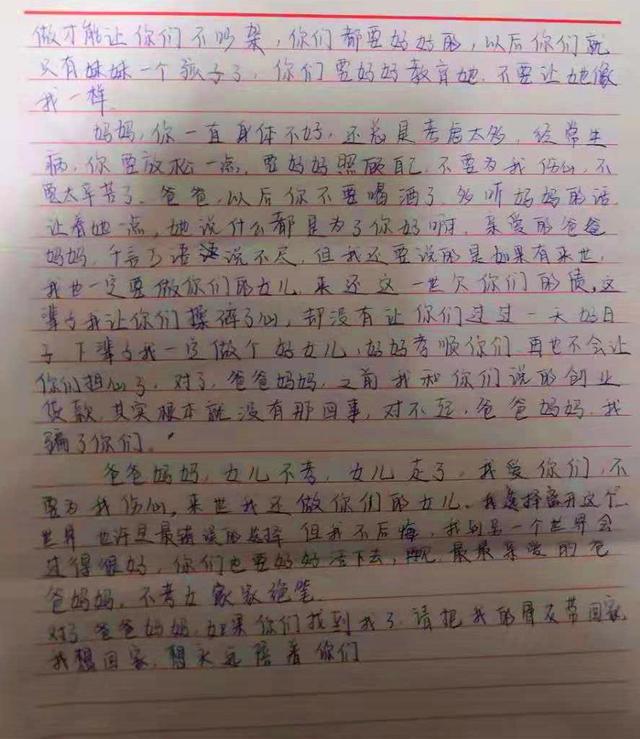 做才能让你们不吵架，你们都要好好的，以后你们就
只有妹妹一个孩子了，你们要好好教育她，不要让她像
我一样。
妈妈，你一直身体不好，还总是考虑太多，经常生
病，你要放松一点，要好好照顾自己，不要为我伤心，不
要太辛苦了。爸爸，以后你不要喝酒了多听妈妈的话，
让着她一点，她说什么都是为了你好呀，亲爱的爸爸
妈妈，千言万语说不尽，但我还要说的是如果有来世，
我也一定要做你们的女儿，来还这一世欠你们的债，这
辈子我让你们操碎了心，却没有让你们过过一天好日
子下辈子我一定做个好女儿，好好孝顺你们，再也不会让
你们担心了，对了，爸爸妈妈，之前我和你们说的创业
贷款，其实根本就没有那回事，对不起，爸爸妈妈，我
骗了你们。
爸爸妈妈，女儿不孝，女儿走了，我爱你们，不
要为我伤心，来世我还做你们的女儿。我选择离开这个
世界也许是最错误的选择但我不后悔，我到另一个世界会
过得很好，你们也要好好活下去，最最亲爱的爸
爸妈妈，不孝女家家绝笔
对了爸爸妈妈，如果你们找到我了，请把我的骨灰带回家
我想回家，想永远陪着你们